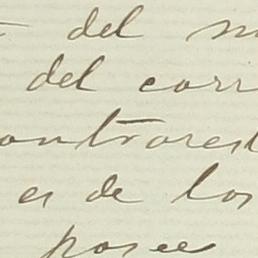 del
del corr
ontrarest
es de los
posee